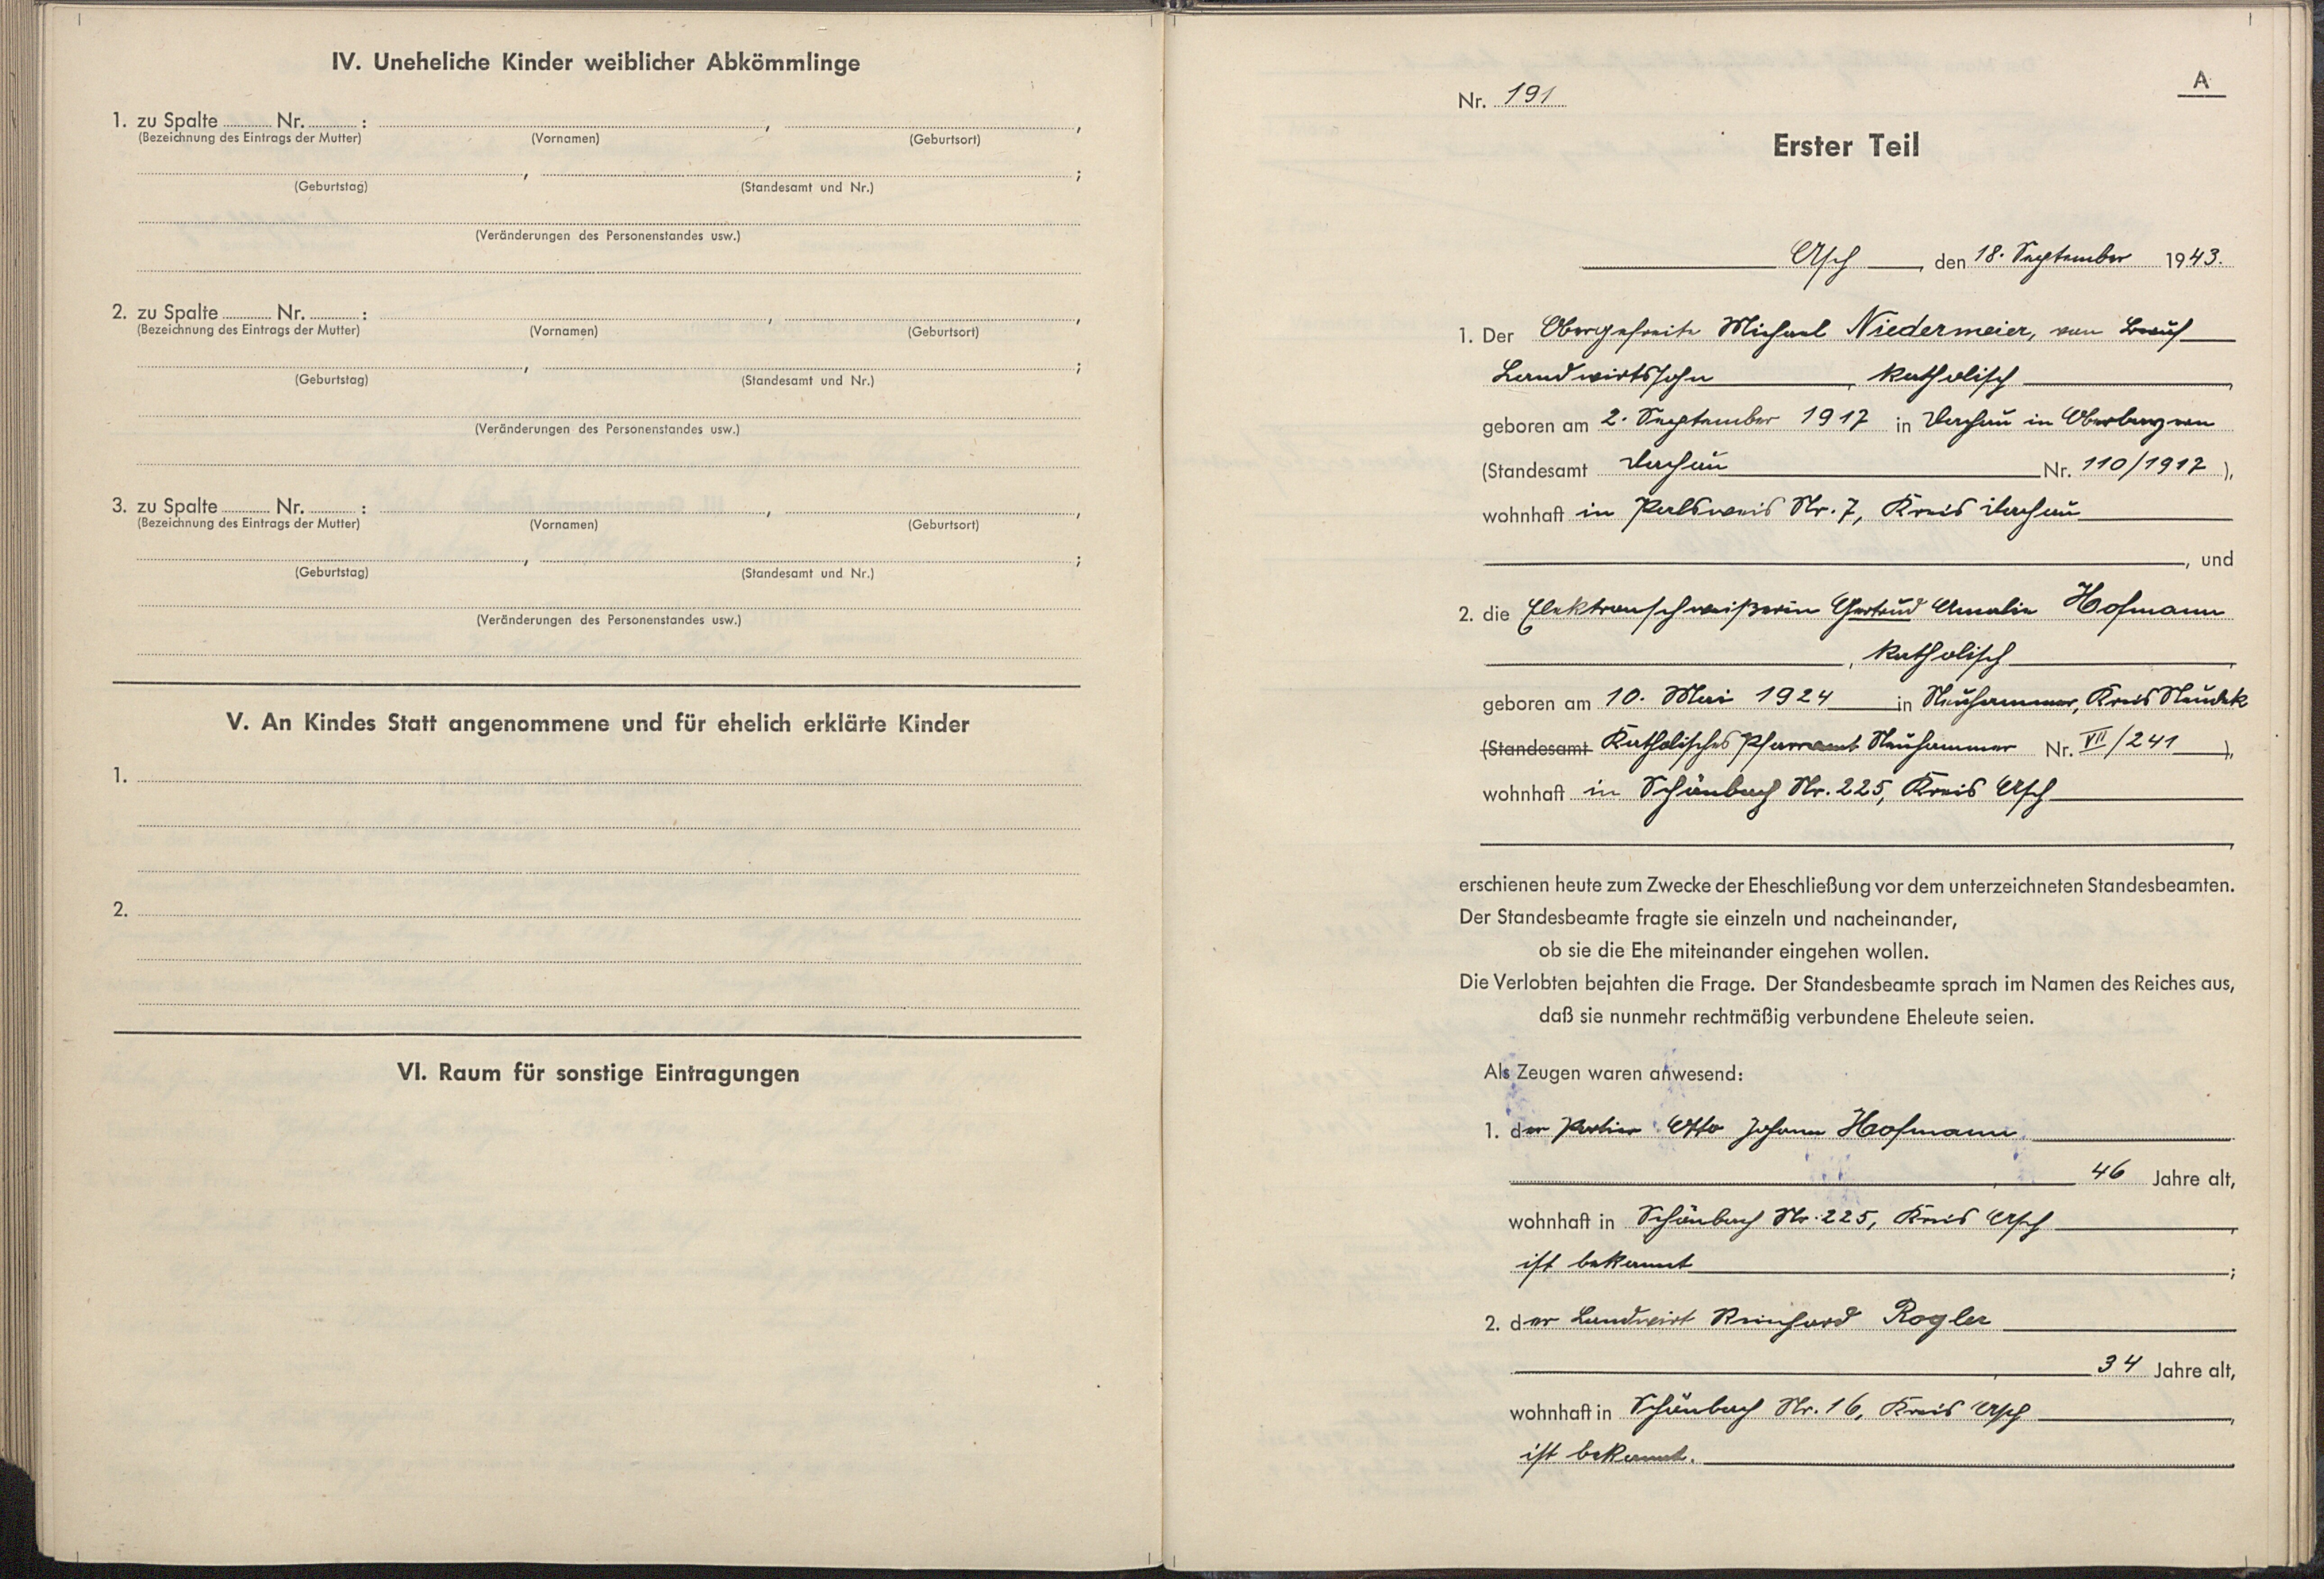 IV. Uneheliche Kinder weiblicher Abkömmlinge
1. zu Spalte Nr. : , ,
(Bezeichnung des Eintrags der Mutter) (Vornamen) (Geburtsort)
, ;
(Geburtstag) (Standesamt und Nr.)
(Veränderungen des Personenstandes usw.)
2. zu Spalte Nr. : , ,
(Bezeichnung des Eintrags der Mutter) (Vornamen) (Geburtsort)
, ;
(Geburtstag) (Standesamt und Nr.)
(Veränderungen des Personenstandes usw.)
3. zu Spalte Nr. : , ,
(Bezeichnung des Eintrags der Mutter) (Vornamen) (Geburtsort)
, ;
(Geburtstag) (Standesamt und Nr.)
(Veränderungen des Personenstandes usw.)
V. An Kindes Statt angenommene und für ehelich erklärte Kinder
1.
2.
VI. Raum für sonstige Eintragungen
A
Nr. 191
Erster Teil
Asch, den 18. September 1943.
1. Der Obergefreite Michael Niedermeier, von Beruf
Landwirtssohn, katholisch,
geboren am 2. September 1917 in Dachau in Oberbayern
(Standesamt Dachau Nr. 110/1917),
wohnhaft in Nr. 7, Kreis Dachau
, und
2. die Elektroschweißerin Gertrud Amalie Hofmann
, katholisch,
geboren am 10. Mai 1924 in Neuhammer, Kreis Neudek
(Standesamt Katholisches Pfarramt Neuhammer Nr. VII/241),
wohnhaft in Schönbach Nr. 225, Kreis Asch
,
erschienen heute zum Zwecke der Eheschließung vor dem unterzeichneten Standesbeamten.
Der Standesbeamte fragte sie einzeln und nacheinander,
ob sie die Ehe miteinander eingehen wollen.
Die Verlobten bejahten die Frage. Der Standesbeamte sprach im Namen des Reiches aus,
daß sie nunmehr rechtmäßig verbundene Eheleute seien.
Als Zeugen waren anwesend:
1. der Portier Otto Johann Hofmann
, 46 Jahre alt,
wohnhaft in Schönbach Nr. 225, Kreis Asch,
ist bekannt;
2. der Landwirt Reinhard Rogler
, 34 Jahre alt,
wohnhaft in Schönbach Nr. 16, Kreis Asch,
ist bekannt.